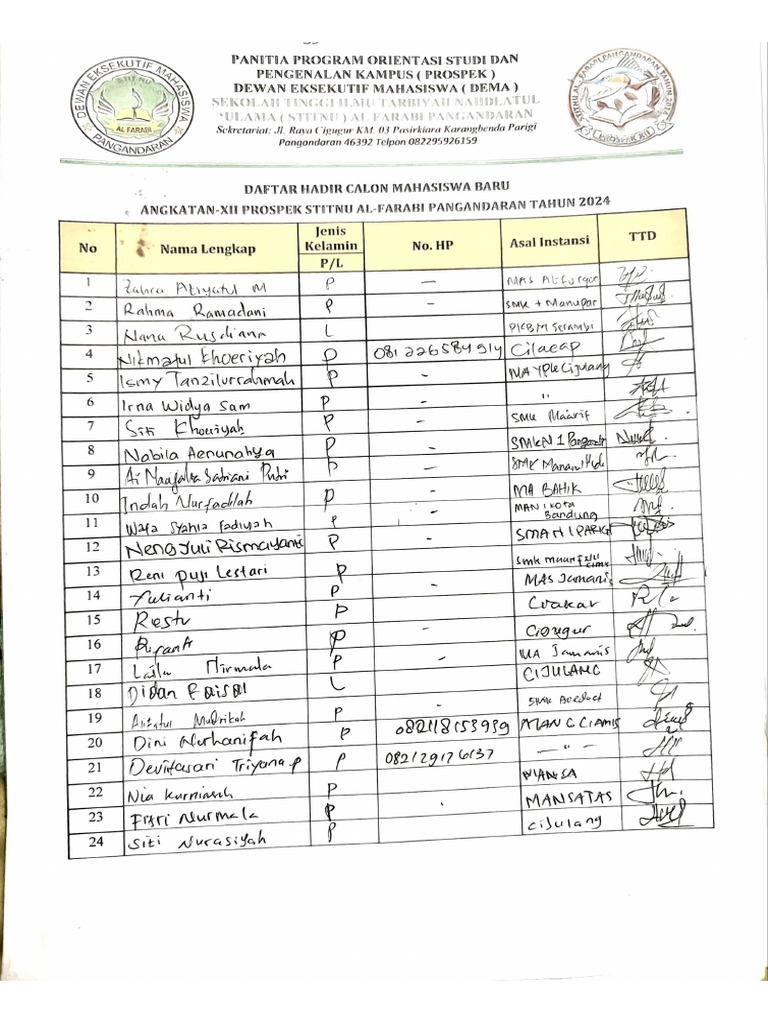 PANITIA PROGRAM ORIENTASI STUDI DAN
PENGENALAN KAMPUS ( PROSPEK )
DEWAN EKSEKUTIF MAHASISWA ( DEMA )
SEKOLAH TINGGI ILMU TARBIYAH NAHDLATUL
'ULAMA ( STITNU ) AL FARABI PANGANDARAN
Sekretariat: Jl. Raya Cigugur KM. 03 Pasirkiara Karangbenda Parigi
Pangandaran 46392 Telpon 082295926159
DEWAN EKSEKUTIF MAHASISWA
STIT NU
AL FARABI
PANGANDARAN
DAFTAR HADIR CALON MAHASISWA BARU
ANGKATAN-XII PROSPEK STITNU AL-FARABI PANGANDARAN TAHUN 2024
No Nama Lengkap Jenis Kelamin P/L No. HP Asal Instansi TTD
1 Zahra Atiyatul M P - MAS
2 Rahma Ramadani P - SMK
3 Nana Rusdiana L PKBM Serambi
4 Nikmatul Khoeriyah P 081226584914 Cilacap
5 Ismy Tanzilurrahmah P - MA YPK Cijulang
6 Irna Widya Sam P - "
7 Siti Khoeriyah P - SMK Maarif
8 Nabila Aenunahya P - SMKN 1
9 P - SMK
10 Indah Nurfadilah P - MA BAHIK
11 Wafa Syahla Fadiyah P - MAN 1 Kota Bandung
12 Neng Juli Rismayanti P - SMAN 1 PARIGI
13 Reni Puji Lestari P - smk
14 Yulianti P - MAS Jamanis
15 Restu P
16 P - Cigugur
17 Laila Nirmala P - MA Jamanis
18 Didan Faisal L CIJULANG
19 P - SMK
20 Dini Nurhanifah P 082118153939 MAN 2 CIAMIS
21 Devitasari Triyana P P 082129176137 - " -
22 Nia Kurniasih P
23 Fitri Nurmala P - MANSATAS
24 Siti Nurasiyah P - Cijulang